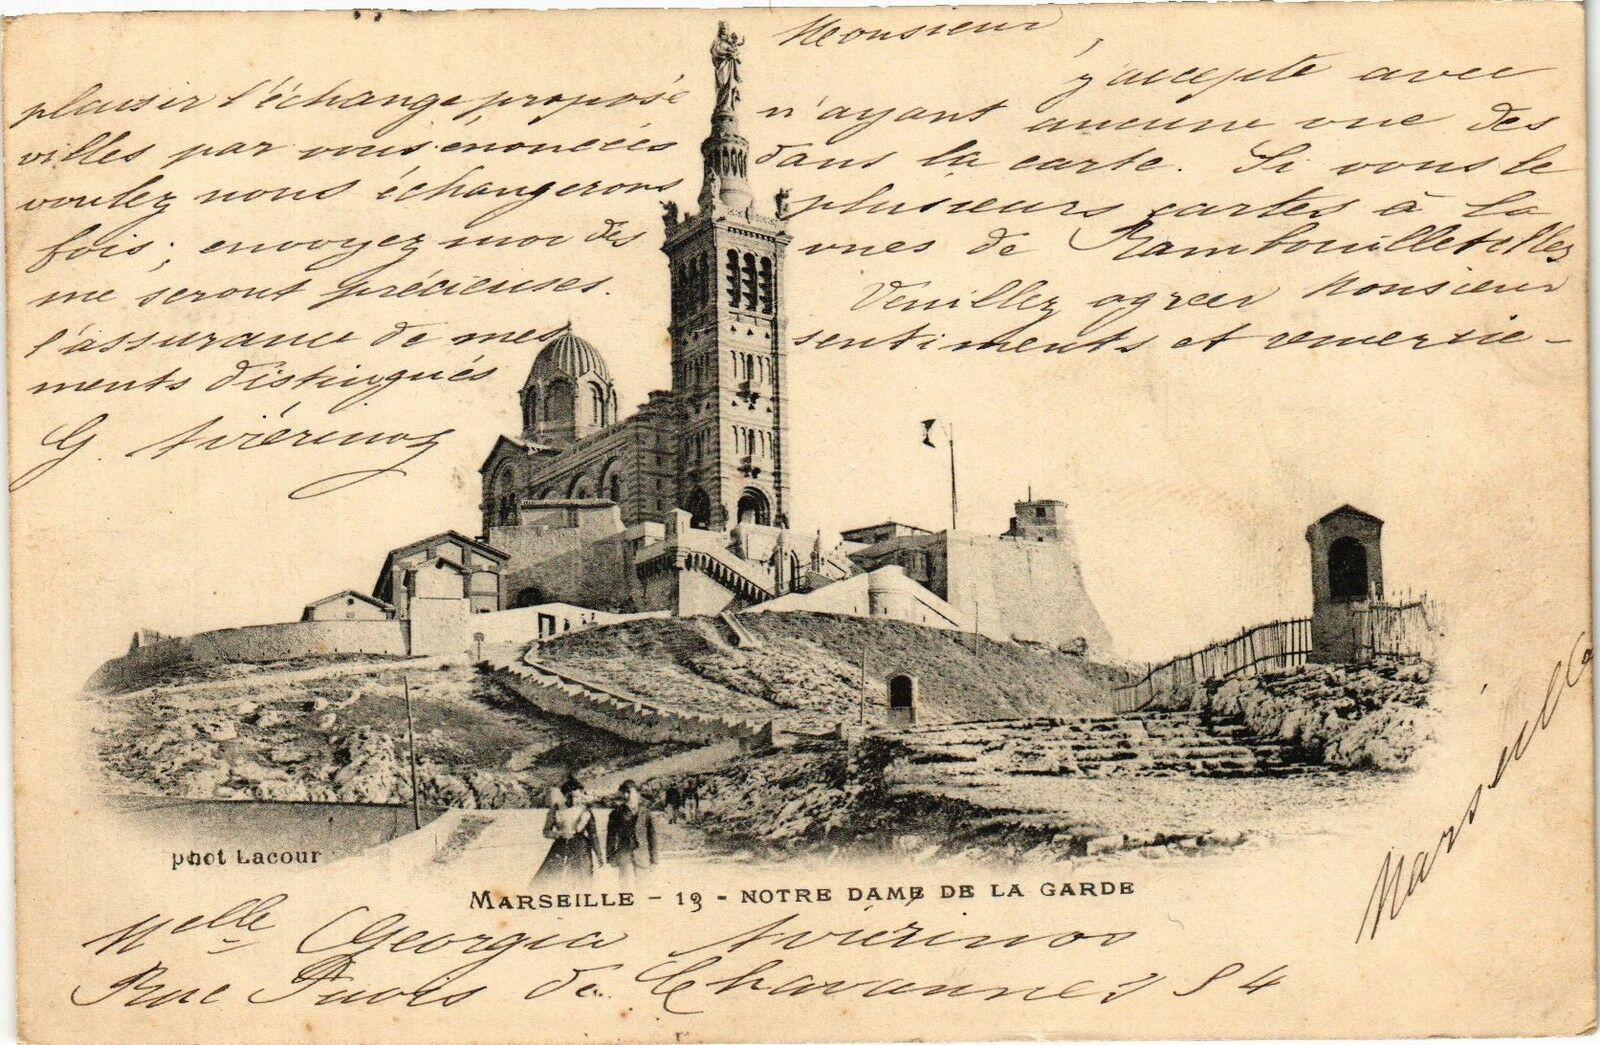 Monsieur,
j'accepte avec
plaisir l'échange proposé n'ayant aucune vue des
villes par vous énoncées dans la carte. Si vous le
voulez nous échangerons plusieurs cartes à la
fois; envoyez moi des vues de Rambouillet elles
me seront précieuses. Veuillez agreer Monsieur
l'assurance de mes sentiments et remercie-
ments distingués
G. Aviérinos
Marseille
phot Lacour
MARSEILLE - 13 - NOTRE DAME DE LA GARDE
Melle Georgia Aviérinos
Rue Puvis de Chavannes 54